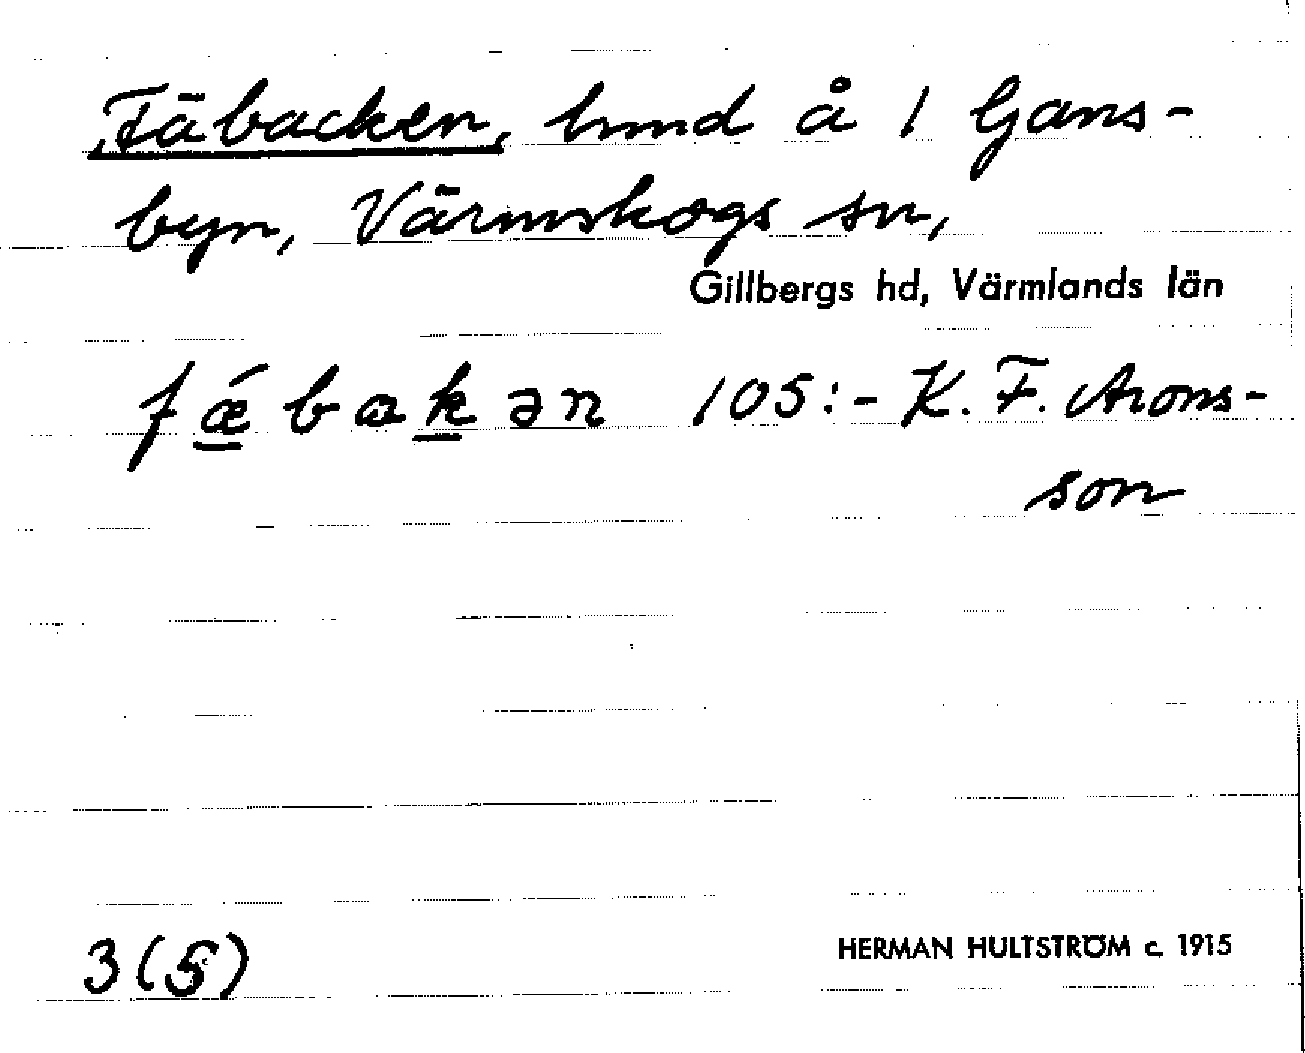 Fäbacken, lund å 1 Gans-
byn, Värmskogs sn,
Gillbergs hd, Värmlands län
fǽbakən 105:- K. F. Arons-
son
3(5)
HERMAN HULTSTRÖM c. 1915